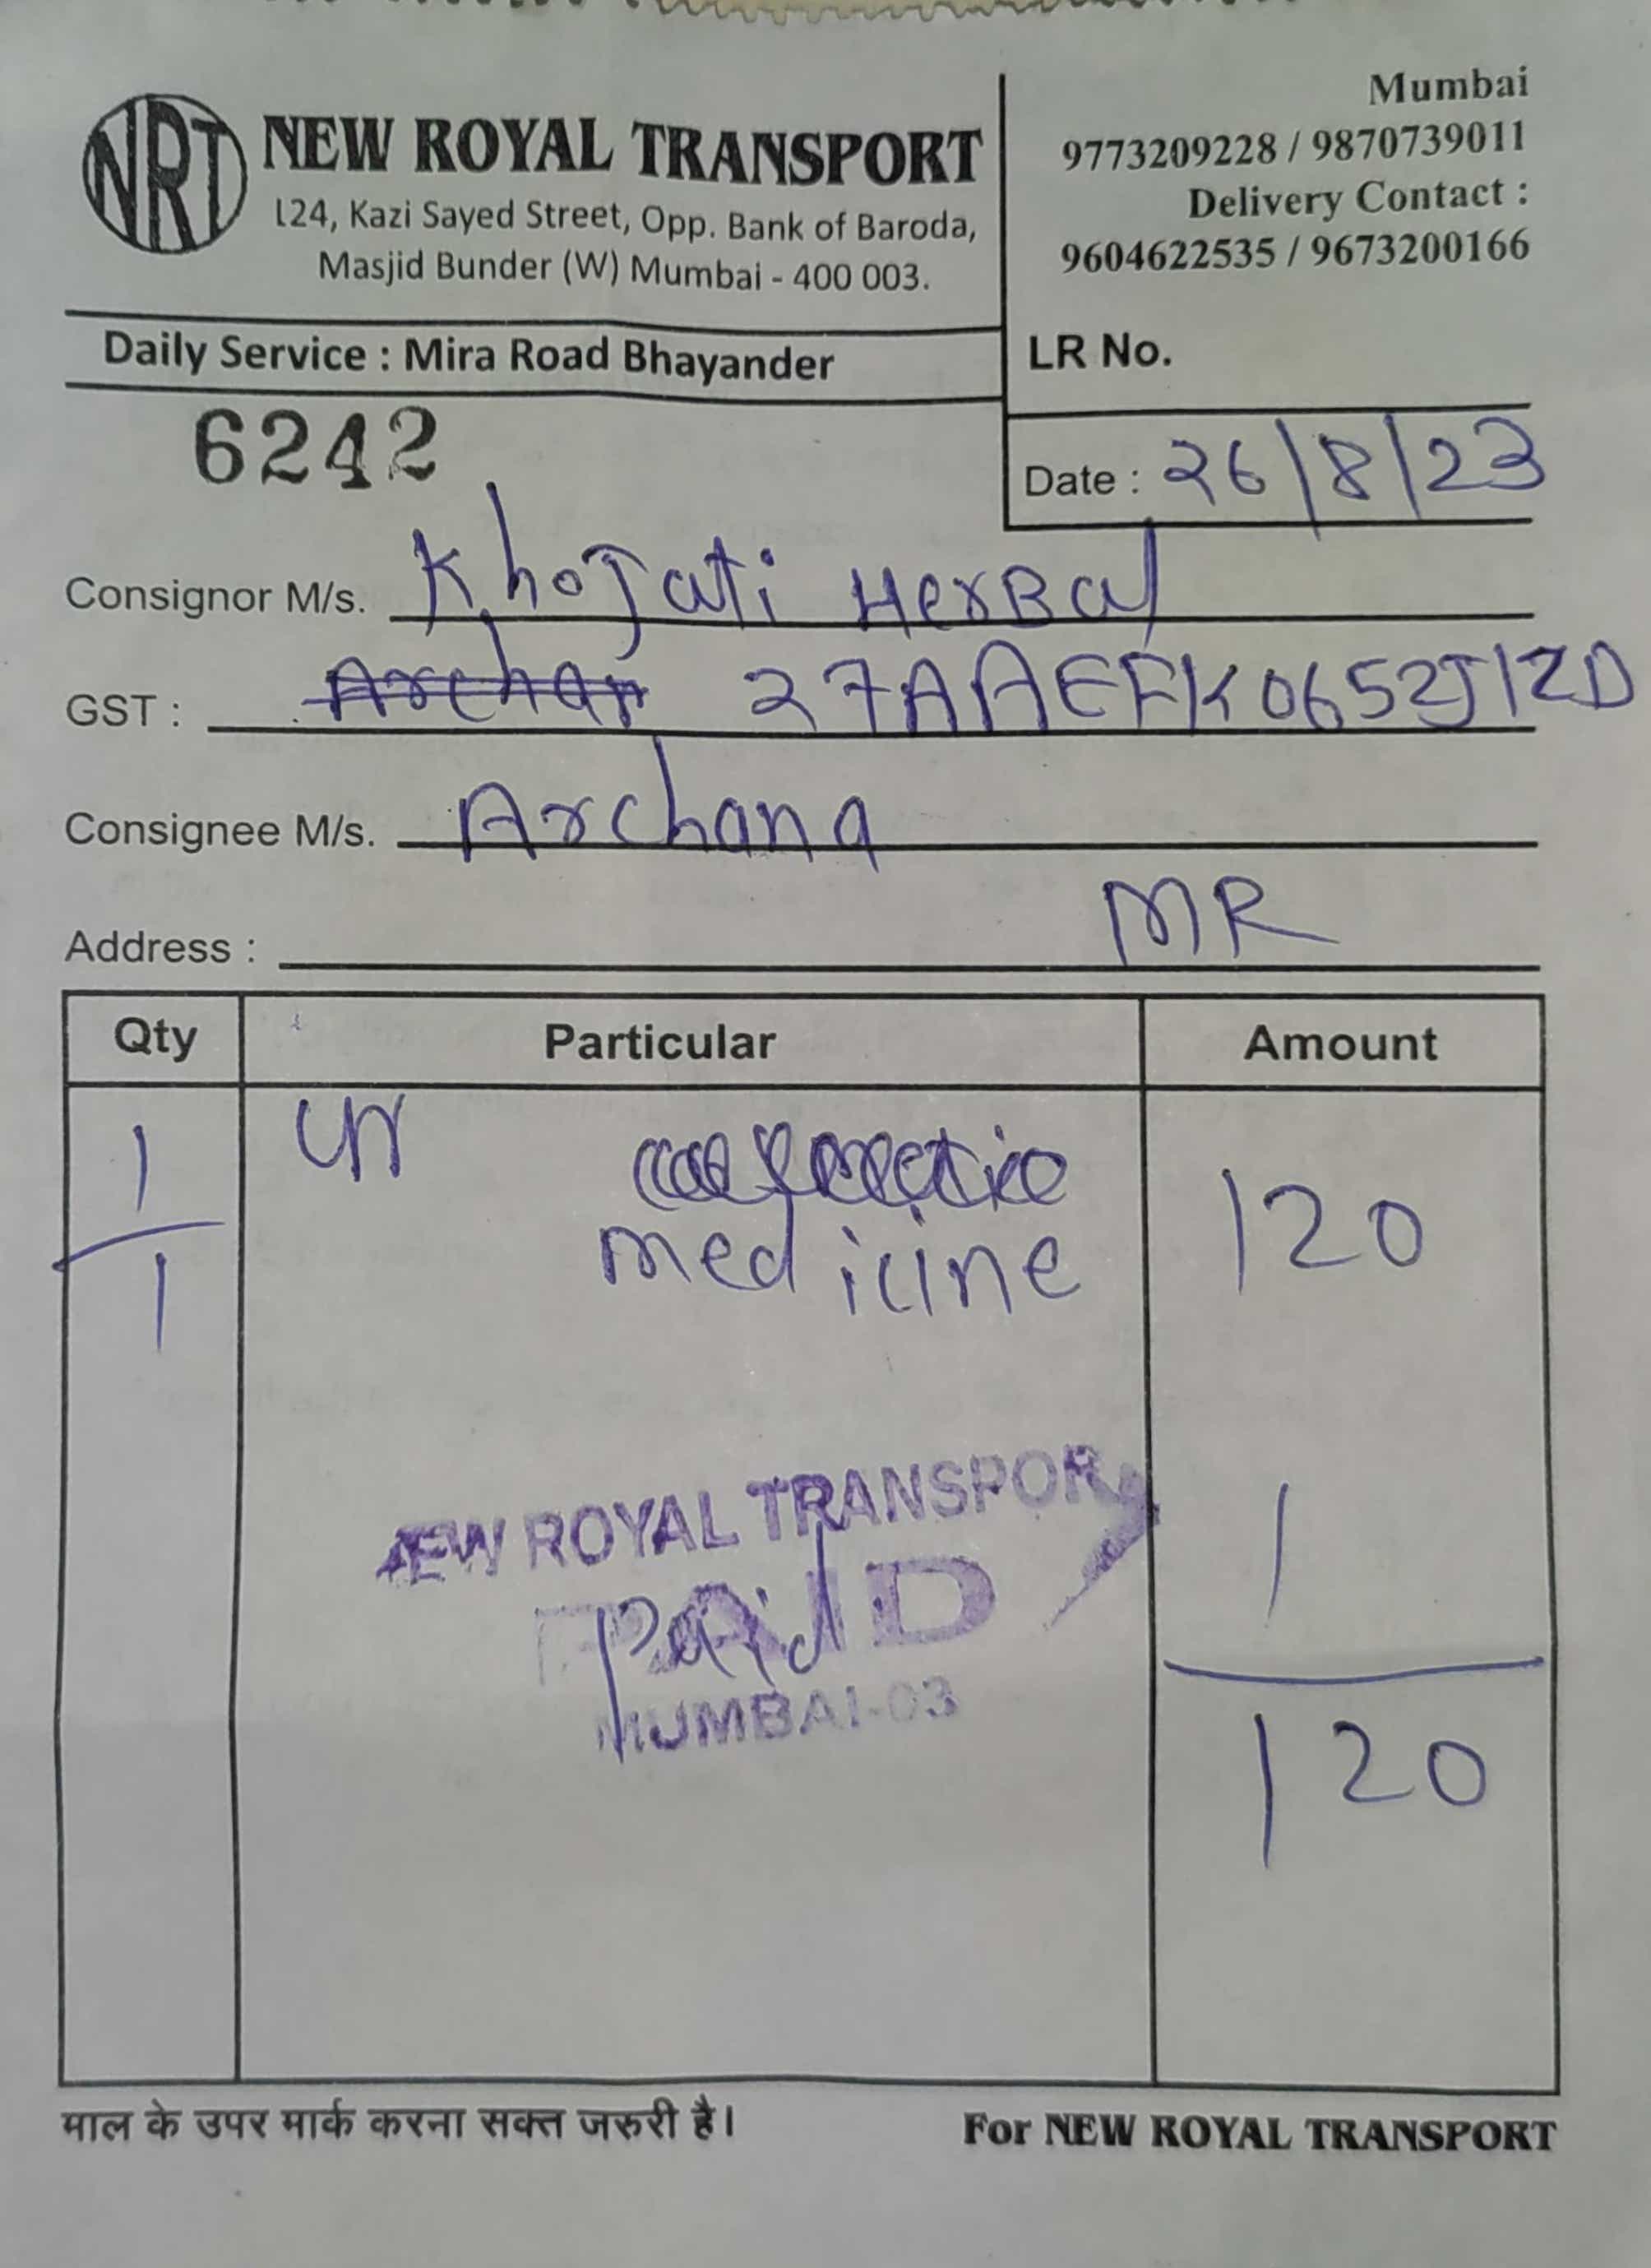 NRT
NEW ROYAL TRANSPORT
124, Kazi Sayed Street, Opp. Bank of Baroda,
Masjid Bunder (W) Mumbai - 400 003.
Mumbai
9773209228 / 9870739011
Delivery Contact :
9604622535 / 9673200166
Daily Service : Mira Road Bhayander
LR No.
6242
Date : 26/8/23
Consignor M/s. Khojati Herbal
GST : Archan 27AAEFK0652J1ZD
Consignee M/s. Archana
Address : MR
Qty Particular Amount
1 medicine 120
1
NEW ROYAL TRANSPOR
PAID
paid
MUMBAI-03
1
120
माल के उपर मार्क करना सक्त जरुरी है।
For NEW ROYAL TRANSPORT